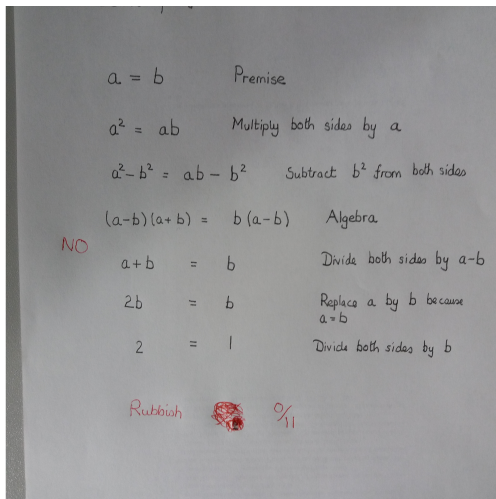 a = b Premise
a² = ab Multiply both sides by a
a²-b² = ab - b² Subtract b² from both sides
(a-b)(a+b) = b(a-b) Algebra
NO
a+b = b Divide both sides by a-b
2b = b Replace a by b because
a=b
2 = 1 Divide both sides by b
Rubbish 0/11